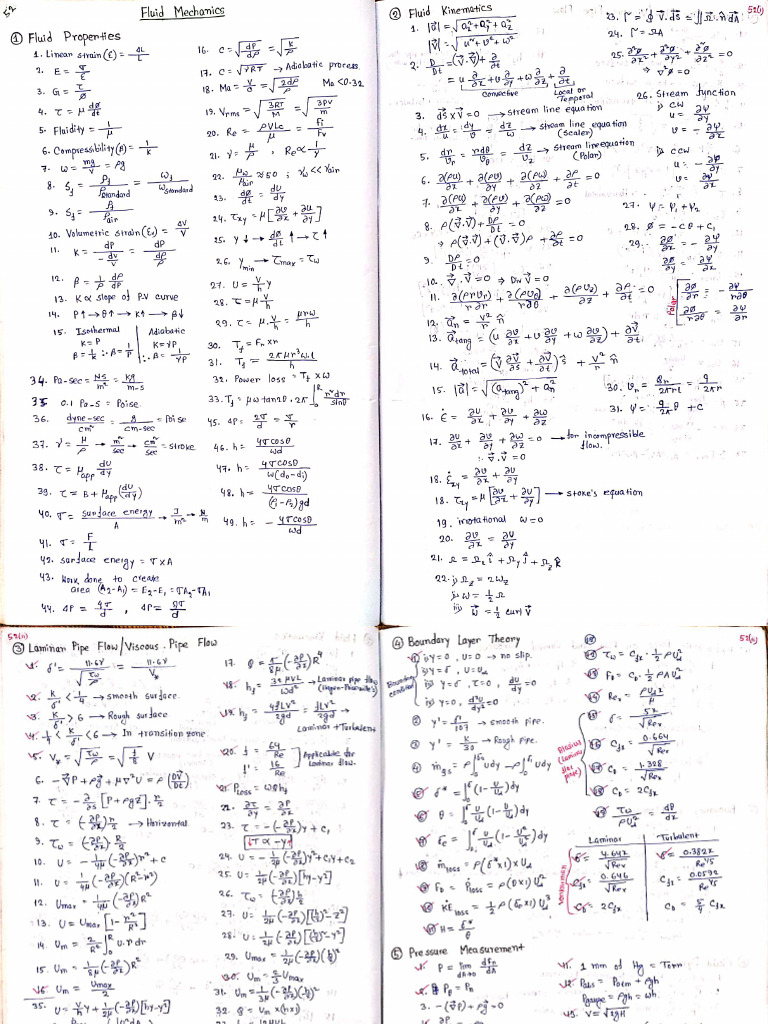 Fluid Mechanics
① Fluid Properties
1. Linear strain(ε) = ΔL/L
2. E = σ/ε
3. G = τ/φ
4. τ = μ dφ/dt
5. Fluidity = 1/μ
6. Compressibility(β) = 1/K
7. w = mg/v = ρg
8. S_f = ρ_f/ρ_standard = w_f/w_standard
9. S_f = ρ_f/ρ_air
10. Volumetric strain(ε_v) = ΔV/V
11. K = dP/(dV/V) = dP/(dρ/ρ)
12. β = 1/ρ dρ/dP
13. K α slope of P-V curve
14. P↑→θ↑→ K↑→ β↓
15. Isothermal | Adiabatic
K = P | K = γP
β = 1/K ∴ β = 1/P | ∴ β = 1/γP
16. C = √(dP/dρ) = √(K/ρ)
17. C = √(γRT) → Adiabatic process
18. Ma < 0.32
19. V_rms = √(3RT/M) = √(3PV/M)
20. Re = ρVLc/μ = Fi/Fv
21. γ = μ/ρ , Re α 1/γ
22. μ_w/μ_air ≈ 50 ; γ_w << γ_air
23. dφ/dt = dU/dy
24. τxy = μ[∂v/∂x + ∂u/∂y]
25. y↓ → dφ/dt ↑ → τ↑
26. y_min → τ_max = τ_w
27. U = V/h y
28. τ = μ V/h
29. τ = μ. V/h = μrw/h
30. T_f = F_n x r
31. T_f = 2πμr³w.L/h
32. Power loss = T_f x w
33. T_f = μw tanθ 2π ∫₀^R r³dr/sinθ
34. Pa-sec = NS/m² = kg/m-s
35 0.1 Pa-s = Poise
36. dyne-sec/cm² = g/cm-sec = Poise
37. γ = μ/ρ → m²/sec → cm²/sec = stroke
38. τ = μ_app dU/dy
39. τ = B + μ_app(dU/dy)
40. σ = surface energy/A → J/m² → N/m
41. σ = F/L
42. surface energy = σ x A
43. Work done to create
area (A₂-A₁) = E₂-E₁ = σA₂-σA₁
44. ΔP = 4σ/d , ΔP = 8σ/d
45. ΔP = 2σ/d = σ/r
46. h = 4σcosθ/wd
47. h = 4σcosθ/w(d₀-di)
48. h = 4σcosθ/(ρ₁-ρ₂)gd
49. h = - 4σcosθ/wd
② Fluid Kinematics
52(i)
1. |a⃗| = √(ax²+ay²+az²)
|V⃗| = √(u²+v²+w²)
2. D/Dt = (V⃗.∇⃗) + ∂/∂t
= u ∂/∂x + v ∂/∂y + w ∂/∂z + ∂/∂t
Convective Local or Temporal
3. ds⃗ x V⃗ = 0 → stream line equation
4. dx/u = dy/v = dz/w → stream line equation (Scaler)
5. dr/Vr = rdθ/Vθ = dz/Vz → Stream line equation (Polar)
6. ∂(ρu)/∂x + ∂(ρv)/∂y + ∂(ρw)/∂z + ∂ρ/∂t = 0
7. ∂(ρu)/∂x + ∂(ρv)/∂y + ∂(ρw)/∂z = 0
8. ρ(∇⃗.V⃗) + Dρ/Dt = 0
⇒ ρ(∇⃗.V⃗) + (V⃗.∇⃗)ρ + ∂ρ/∂t = 0
9. Dρ/Dt = 0
10. ∇⃗.V⃗ = 0 ⇒ Div V⃗ = 0
11. ∂(ρrVr)/r∂r + ∂(ρVθ)/r∂θ + ∂(ρVz)/∂z + ∂ρ/∂t = 0
12. a⃗n = V²/r n̂
13. a⃗tang = (u ∂v/∂x + v ∂v/∂y + w ∂v/∂z) + ∂V⃗/∂t
14. a⃗total = (V⃗ ∂V⃗/∂s + ∂V⃗/∂t) ŝ + V²/r n̂
15. |a⃗| = √((atang)² + an²)
16. ε̇ = ∂u/∂x + ∂v/∂y + ∂w/∂z
17. ∂u/∂x + ∂v/∂y + ∂w/∂z = 0 → for incompressible flow.
∴ ∇⃗.V⃗ = 0
18. ε̇xy = ∂v/∂x + ∂u/∂y
18. τxy = μ[∂v/∂x + ∂u/∂y] → stoke's equation
19. irrotational w = 0
20. ∂v/∂x = ∂u/∂y
21. Ω = Ωx î + Ωy ĵ + Ωz k̂
22. i) Ωz = 2wz
ii) w = 1/2 Ω
iii) w⃗ = 1/2 curl V⃗
23. Γ = ∮ V⃗.ds⃗ = ∬ Ω.n̂ dA
24. Γ = ΩA
25. ∂²φ/∂x² + ∂²φ/∂y² + ∂²φ/∂z² = 0
⇒ ∇²φ = 0
26. Stream function
i) CW
u = ∂ψ/∂y
v = - ∂ψ/∂x
ii) CCW
u = - ∂ψ/∂y
v = ∂ψ/∂x
27. ψ = ψ₁ + ψ₂
28. φ = -Cθ + C₁
29. ∂φ/∂x = - ∂ψ/∂y
∂φ/∂y = ∂ψ/∂x
Polar
∂φ/∂r = - ∂ψ/r∂θ
∂φ/r∂θ = ∂ψ/∂r
31. ψ = q/2π θ + C
52(ii)
③ Laminar Pipe Flow/Viscous Pipe Flow
1. δ' = 11.6γ/√(τw/ρ) = 11.6γ/V*
2. K/δ' < 1/4 → smooth surface
3. K/δ' > 6 → Rough surface
4. 1/4 < K/δ' < 6 → In transition zone
5. V* = √(τw/ρ) = √(f/8) V
6. -∇⃗P + ρg⃗ + μ∇²U = ρ(DV⃗/Dt)
7. τ = - ∂/∂s [P + ρgz]. r/2
8. τ = (-∂P/∂x) r/2 → Horizontal
9. τw = (-∂P/∂x) R/2
10. U = - 1/4μ (-∂P/∂x) r² + c
11. U = 1/4μ (-∂P/∂x)(R²-r²)
12. Umax = 1/4μ (-∂P/∂x) R²
13. U = Umax [1 - r²/R²]
14. Um = 2/R² ∫₀^R u.r dr
15. Um = 1/8μ (-∂P/∂x) R²
16. Um = Umax/2
35. U = V/h y + 1/2μ (-∂P/∂x)[hy-y²]
17. Q = π/8μ (-∂P/∂x) R⁴
18. hf = 32μVL/wd² → Laminar pipe flow
19. hf = 4fLV²/2gd = fLV²/2gd → Laminar + Turbulent
20. f = 64/Re
f' = 16/Re
Applicable for Laminar flow.
21. Ploss = wQhf
22. ∂τ/∂y = ∂P/∂x
23. τ = -(-∂P/∂x)y + C₁
τ α -y
24. U = - 1/2μ (-∂P/∂x) y² + C₁y + C₂
25. U = 1/2μ (-∂P/∂x)[hy-y²]
26. τw = (-∂P/∂x) h/2
27. U = 1/2μ (-∂P/∂x)[(h/2)²-z²]
28. U = 1/2μ (-∂P/∂x)[(h/2)²-y²]
29. Umax = 1/2μ (-∂P/∂x)(h/2)²
30. Um = 2/3 Umax
31. Um = 1/3μ (-∂P/∂x)(h/2)²
32. Q = Um x (hx1)
④ Boundary Layer Theory
52(iii)
Boundary condition
i) y=0, u=0 → no slip.
ii) y=δ, u=U∞
iii) y=δ, τ=0, du/dy = 0
iv) y=0, d²u/dy² = 0
② y' = δ'/107 → smooth pipe.
③ y' = K/30 → Rough pipe.
⑤ δ* = ∫₀^δ (1-U/U∞)dy
⑥ θ = ∫₀^δ U/U∞ (1-U/U∞)dy
⑦ δE = ∫₀^δ U/U∞ (1-U²/U∞²)dy
⑧ ṁloss = ρ(δ*x1)U∞
⑨ FD = Ṗloss = ρ(θx1)U∞²
⑩ K̇Eloss = 1/2 ρ(δE x1)U∞³
⑪ H = δ*/θ
τw = Cfx . 1/2 ρU∞²
FD = CD . 1/2 ρAU∞²
Rex = ρU∞x/μ
Blasius (Laminar flat plate)
δ = 5x/√Rex
Cfx = 0.664/√Rex
CD = 1.328/√Rex
CD = 2Cfx
τw/ρU∞² = dθ/dx
Laminar | Turbulent
δ = 4.64x/√Rex | δ = 0.382x/Re^1/5
Cfx = 0.646/√Rex | Cfx = 0.0592/Re^1/5
CD = 2Cfx | CD = 5/4 Cfx
⑤ Pressure Measurement
1. P = lim dA→0 dFn/dA
3. -(∇⃗P) + ρg⃗ = 0
11. 1 mm of Hg = Torr
12. Pabs = Patm + ρgh
Pgauge = ρgh = wh
V = √2gH